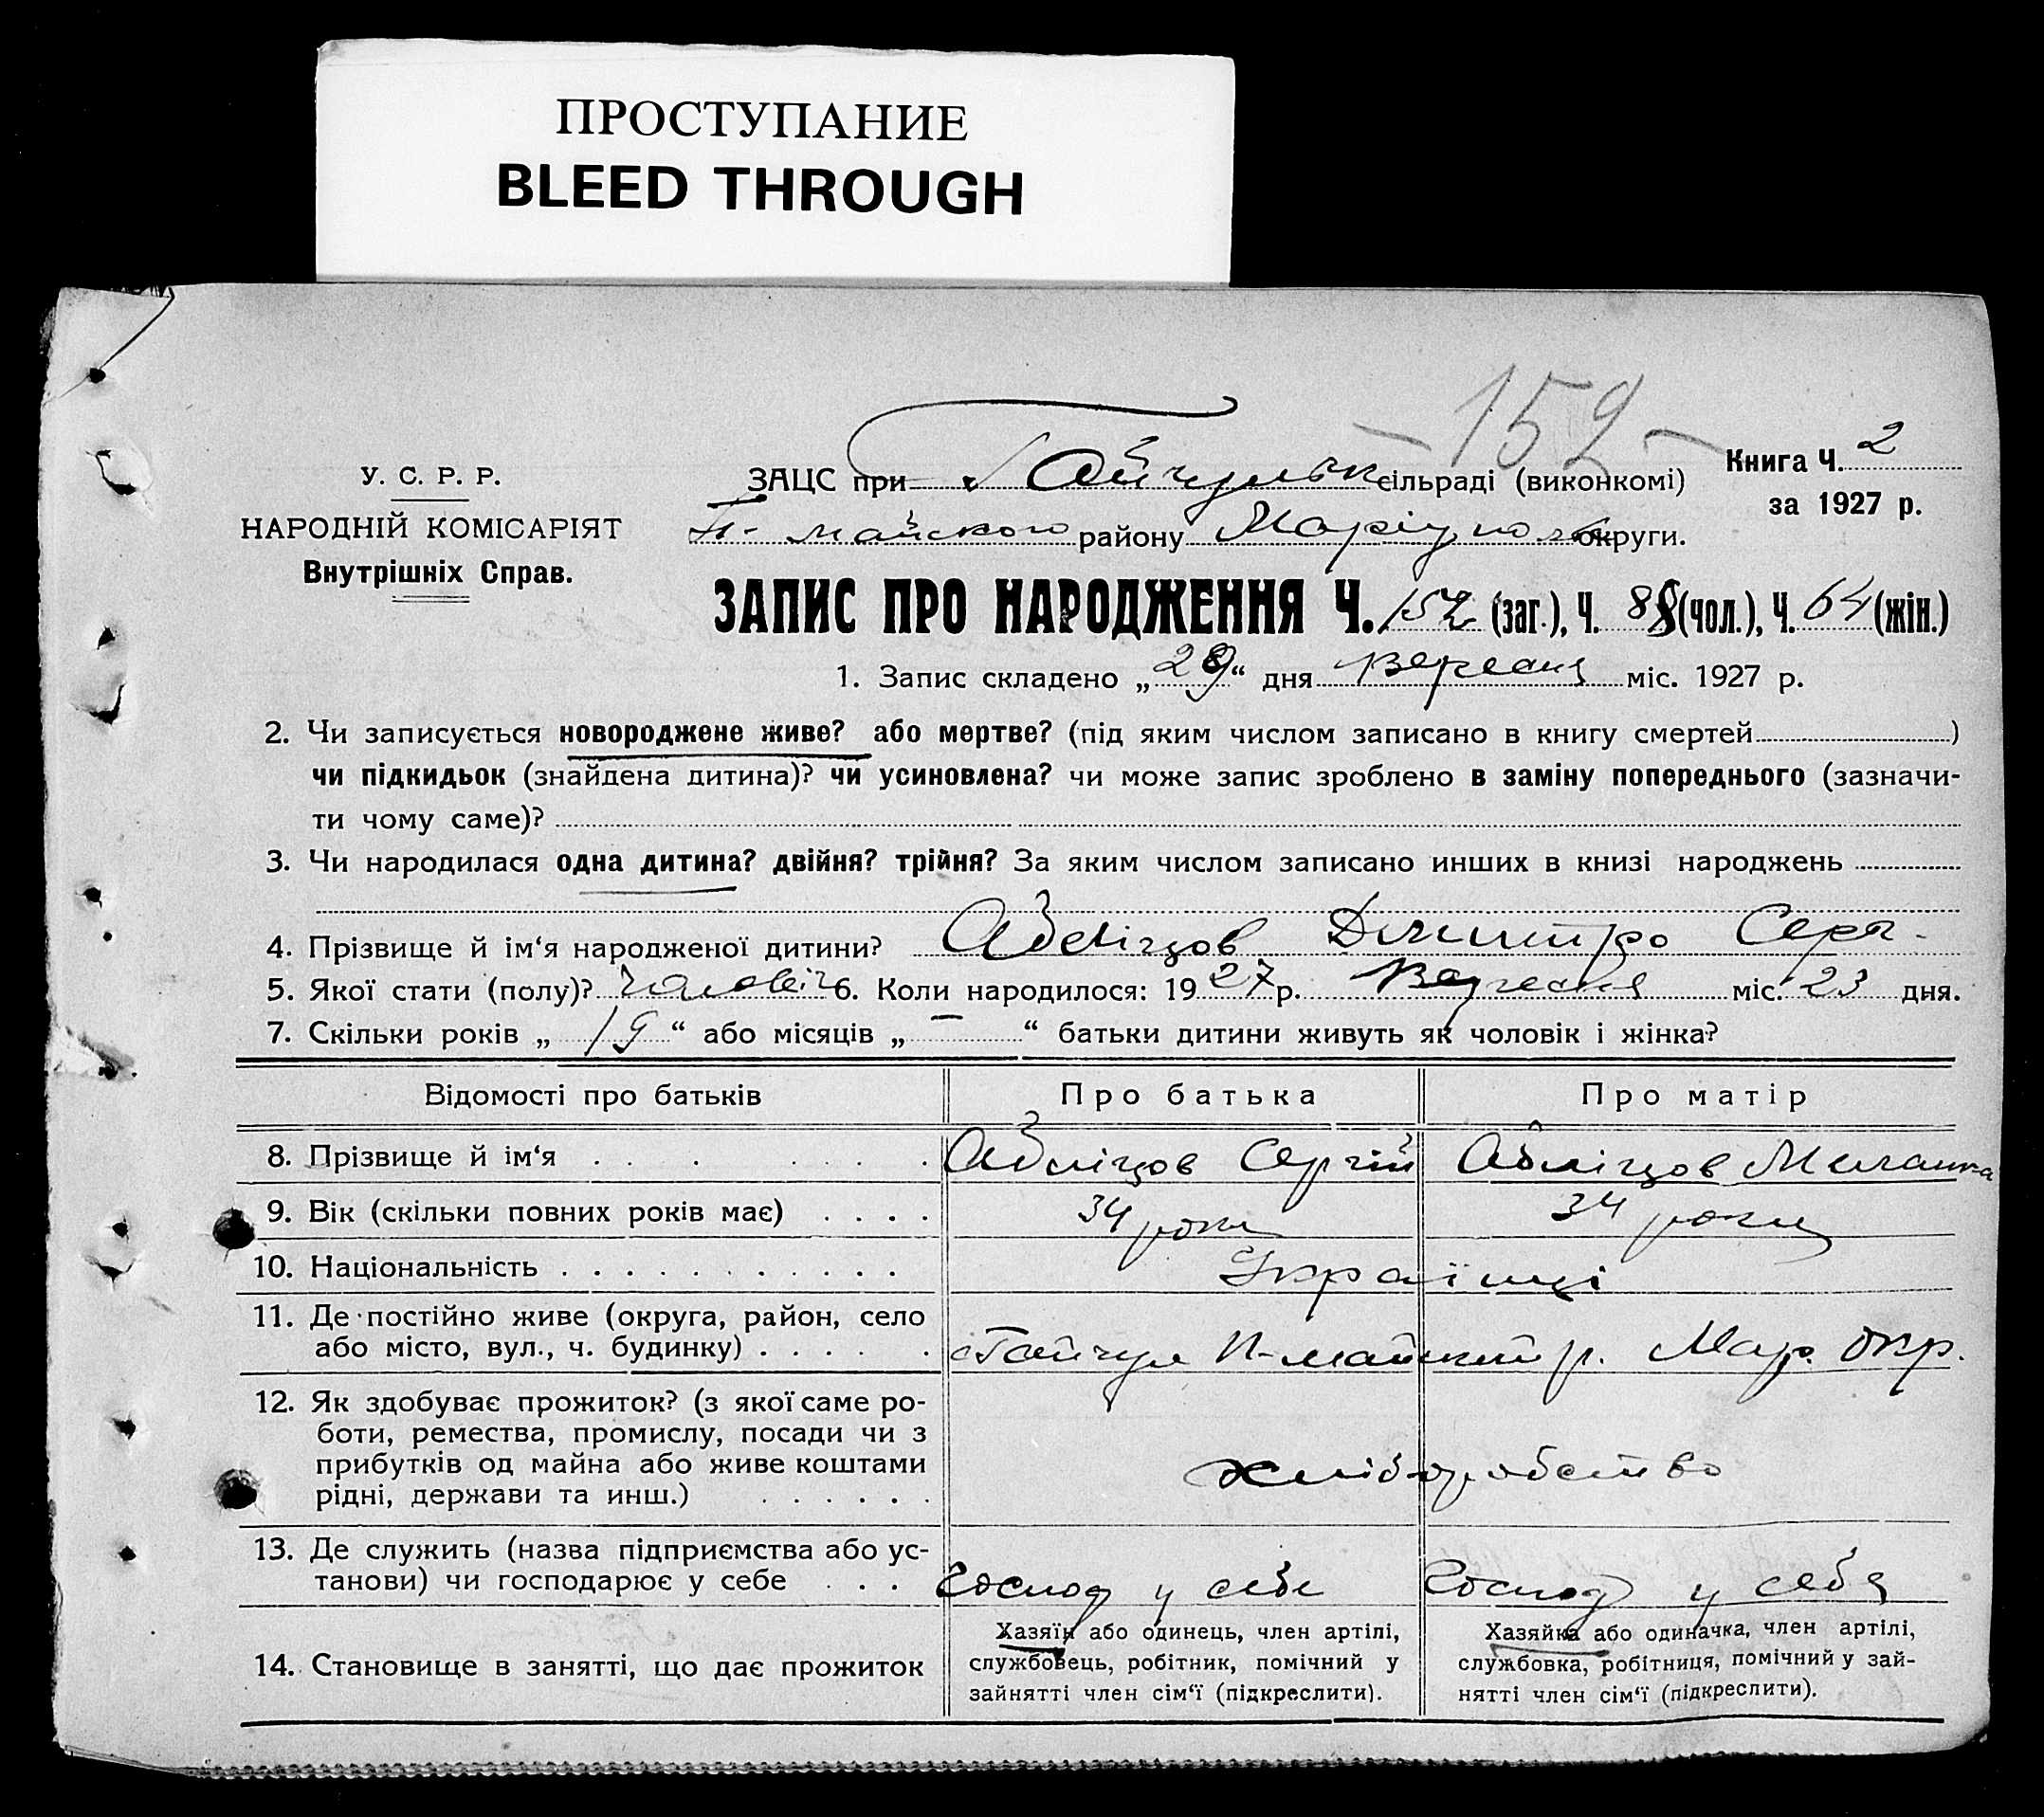 ПРОСТУПАНИЕ
BLEED THROUGH
-152-
У. С. Р. Р.
НАРОДНІЙ КОМІСАРІЯТ
Внутрішніх Справ.
ЗАЦС при Гайчульск сільраді (виконкомі)
П-майського району Маріупольс округи.
Книга Ч. 2
за 1927 р.
ЗАПИС ПРО НАРОДЖЕННЯ Ч. 152 (заг.), Ч. 88 (чол.), Ч. 64 (жін.)
1. Запис складено „29“ дня Вересня міс. 1927 р.
2. Чи записується новороджене живе? або мертве? (під яким числом записано в книгу смертей )
чи підкидьок (знайдена дитина)? чи усиновлена? чи може запис зроблено в заміну попереднього (зазначи-
ти чому саме)?
3. Чи народилася одна дитина? двійня? трійня? За яким числом записано инших в книзі народжень
4. Прізвище й ім‘я народженої дитини? Абліцов Дмитро Серг.
5. Якої стати (полу)? Чоловіч 6. Коли народилося: 1927 р. Вересня міс. 23 дня.
7. Скільки років „19“ або місяців „—“ батьки дитини живуть як чоловік і жінка?
Відомості про батьків Про батька Про матір
8. Прізвище й ім‘я . . . . . . . Абліцов Сергій Абліцов Миланка
9. Вік (скільки повних років має) . . . . 34 роки 34 роки
10. Національність . . . . . . . . . . . Українці
11. Де постійно живе (округа, район, село
або місто, вул., ч. будинку) . . . . . с Гайчул П-майский р. Мар. окр.
12. Як здобуває прожиток? (з якої саме ро-
боти, ремества, промислу, посади чи з
прибутків од майна або живе коштами
рідні, держави та инш.) . . . . . .
хліборобство
13. Де служить (назва підприємства або ус-
танови) чи господарює у себе . . . Господ у себе Господ у себе
14. Становище в занятті, що дає прожиток
Хазяїн або одинець, член артілі,
службовець, робітник, помічний у
зайнятті член сім‘ї (підкреслити).
Хазяйка або одиначка, член артілі,
службовка, робітниця, помічний у зай-
нятті член сім‘ї (підкреслити).